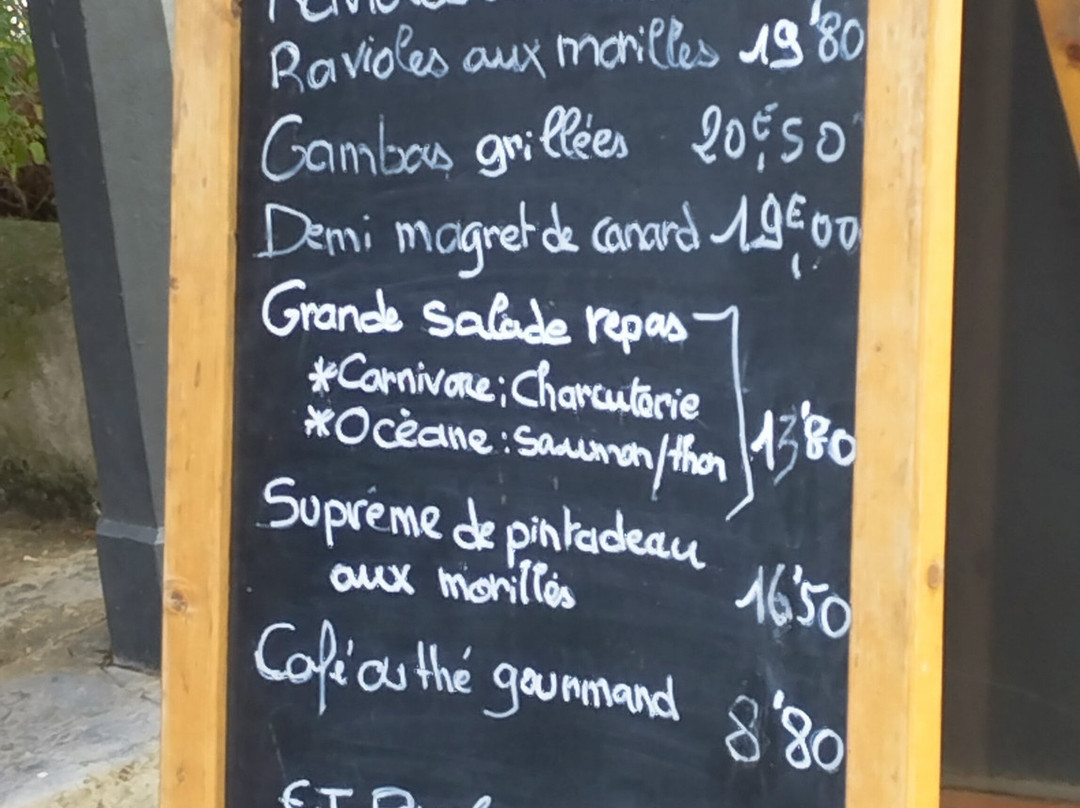 Ravioles aux morilles 19'80
Gambas grillées 20€,50
Demi magret de canard 19€,00
Grande salade repas
*Carnivore: Charcuterie
*Océane: Saumon/thon 13'80
Suprême de pintadeau
aux morilles 16'50
Café ou thé gourmand
8'80